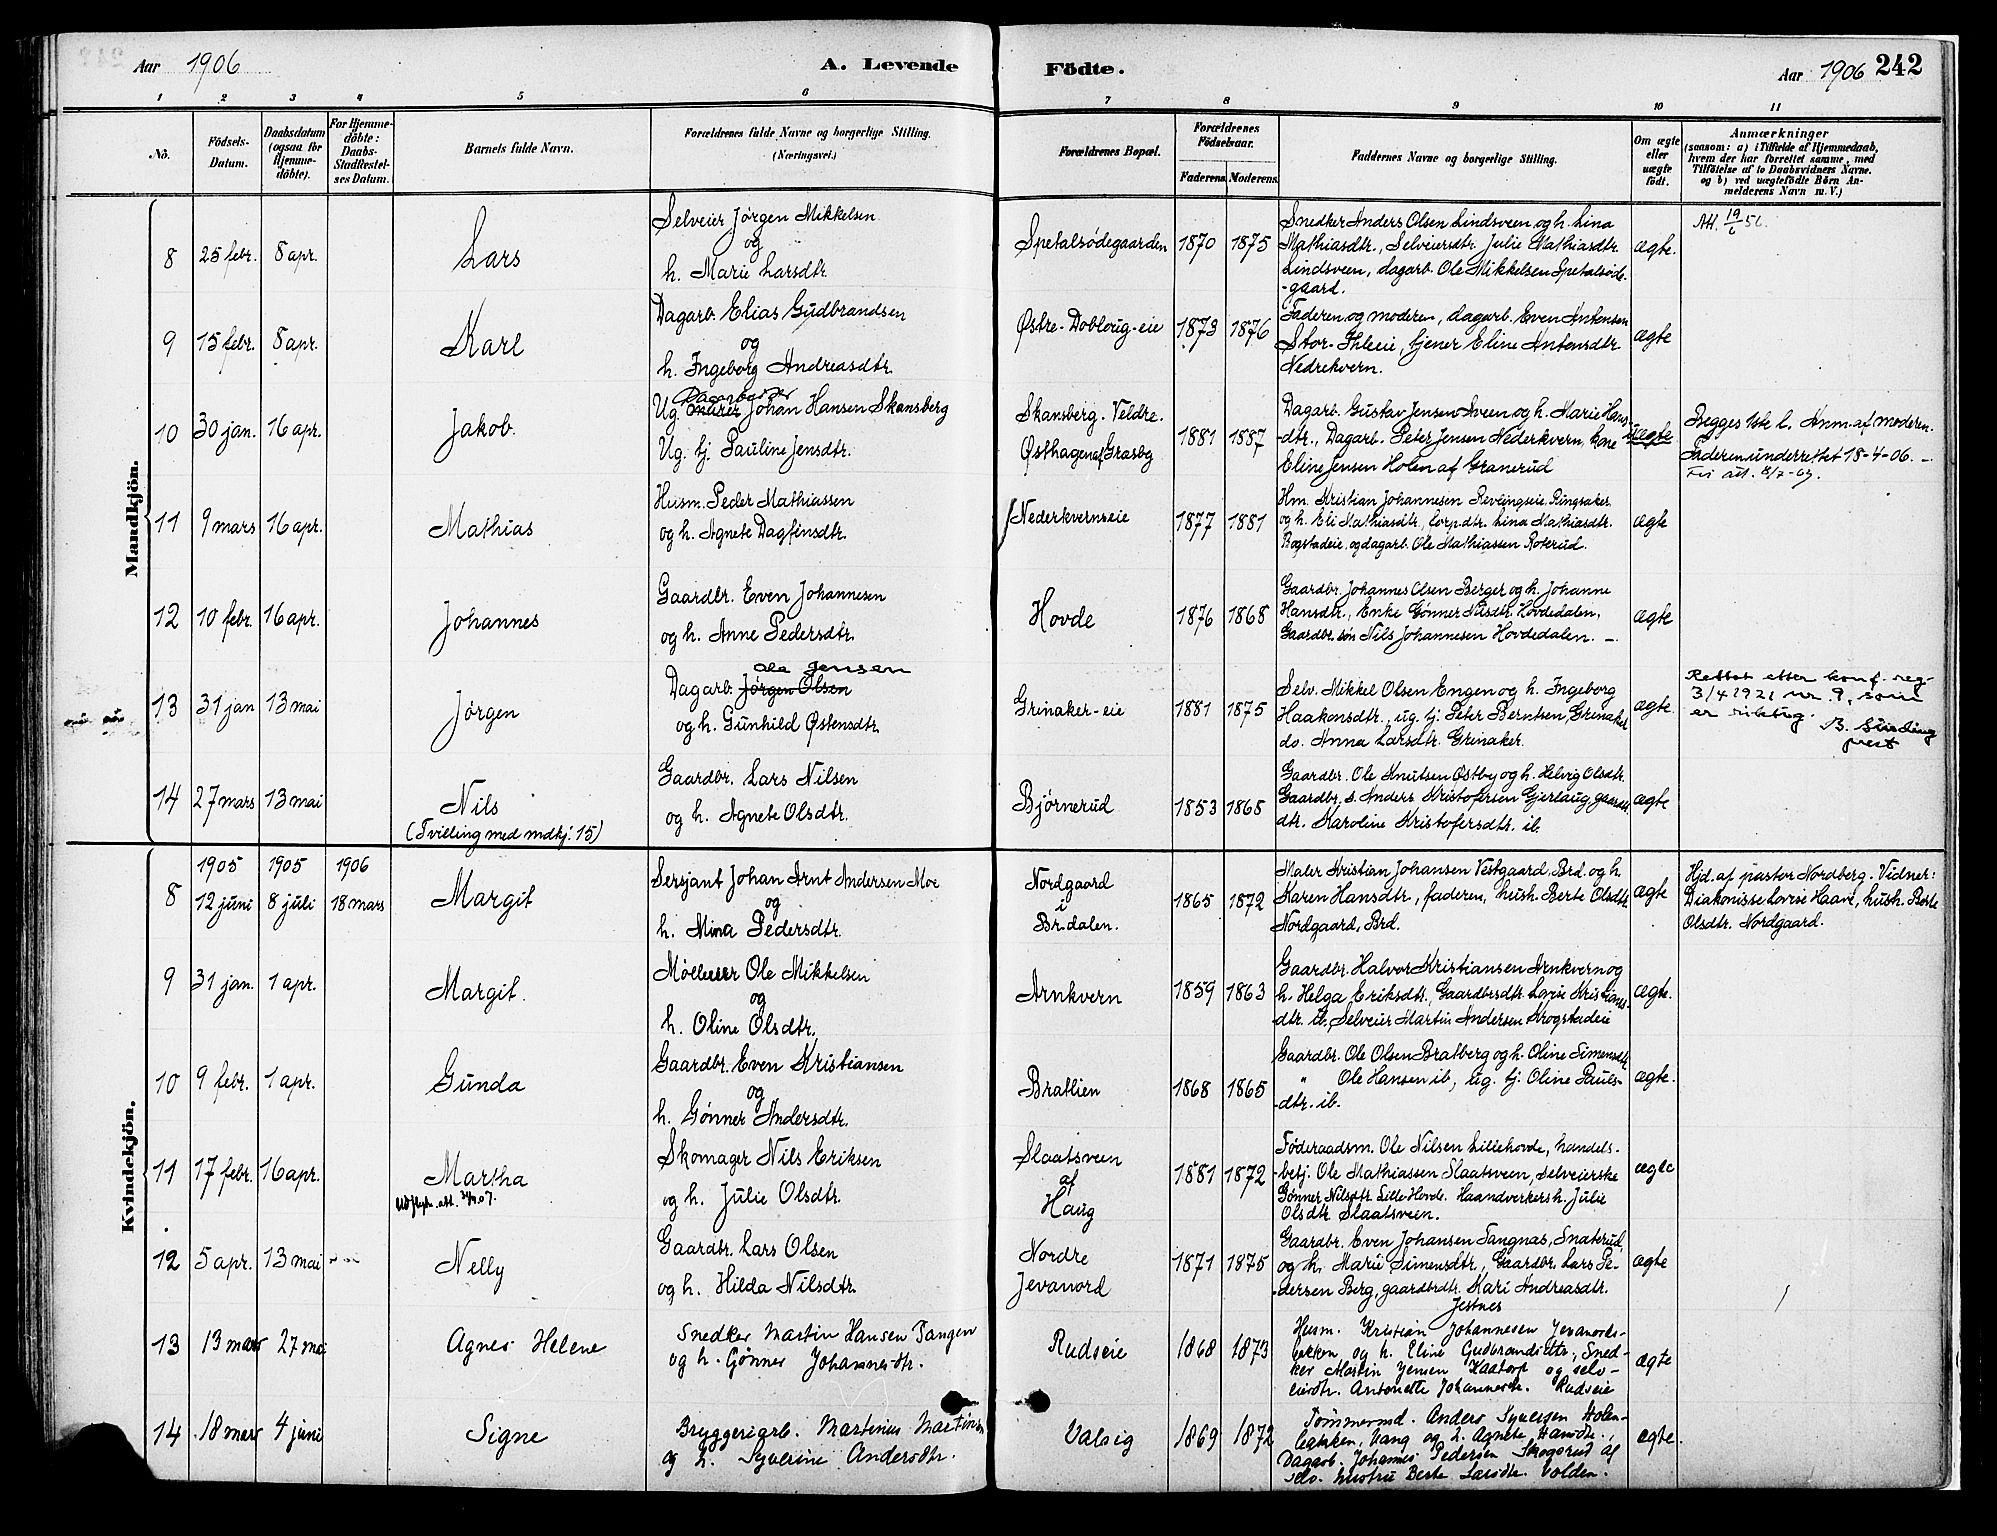 Aar 1906
A. Levende Födte.
Aar 1906 242
1 2 3 4 5 6 7 8 9 10 11
Nö.
Födsels-Datum.
Daabsdatum (ogsaa for Hjemme-döbte).
For Hjemme-döbte: Daabs-Stadfestel-ses Datum.
Barnets fulde Navn.
Forældrenes fulde Navne og borgerlige Stilling.
(Næringsvei.)
Forældrenes Bopæl.
Forældrenes Födselsaar.
Faderens. Moderens.
Faddernes Navne og borgerlige Stilling.
Om ægte eller uægte födt.
Anmærkninger
(saasom: a) i Tilfælde af Hjemmedaab,
hvem der har forrettet samme, med
Tilföielse af to Daabsvidners Navne.
og b) ved uægtefödte Börn An-
melderens Navn m. V.)
Mandkjön.
8 25 febr. 8 apr. Lars
Selveier Jørgen Mikkelsen
og
h. Marie Larsdtr.
Spetalsødegaarden 1870 1875
Snedker Anders Olsen Lindsveen og h. Lina
Mathiasdtr., Selveiersdtr. Julie Mathiasdtr.
Lindsveen, dagarb. Ole Mikkelsen Spetalsøde-
-gaard.
ægte.
Att. 19/6 56.
9 15 febr. 8 apr. Karl
Dagarb. Elias Gudbrandsen
og
h. Ingeborg Andreasdtr.
Østre-Dobloug-eie 1873 1876
Faderen og moderen, dagarb. Even Antonsen
Stor-Ihleeie, tjener Eline Antonsdtr
Nedrekvern.
ægte
10 30 jan. 16 apr. Jakob.
Dagarbeider
Ug. Johan Hansen Skansberg
Ug. tj. Pauline Jensdtr.
Skansberg. Veldre.
Østhagen af Grasby
1881 1887
Dagarb. Gustav Jensen Aveen og h. Marie Hans-
-dtr., Dagarb. Peter Jensen Nederkvern, kone
Eline Jensen Holen af Granerud
uægte
Begges 1ste l. Anm. af moderen.
Faderen underrettet 18-4-06. -
Fri att. 8/7-69.
11 9 mars 16 apr. Mathias
Husm. Peder Mathiassen
og h. Agnete Dagfinsdtr.
Nederkvernseie 1877 1881
Hm. Kristian Johannesen Revlingseie Ringsaker
og h. Eli Mathiasdtr., korp.dtr. Lina Mathiasdtr.
Rogstadeie, og dagarb. Ole Mathiassen Roterud.
ægte
12 10 febr. 16 apr. Johannes
Gaardbr. Even Johannesen
og h. Anne Pedersdtr.
Hovde 1876 1868
Gaardbr. Johannes Olsen Berger og h. Johanne
Hansdtr., Enke Gønner Nilsdtr. Hovdedalen,
Gaardbr. søn Nils Johannesen Hovdedalen. -
ægte
13 31 jan 13 mai Jørgen
Ole Jensen
Dagarb. Jørgen Olsen
og h. Gunhild Østensdtr.
Grinaker-eie 1881 1875
Selv. Mikkel Olsen Engen og h. Ingeborg
Haakonsdtr., ug. tj. Peter Berntsen, Grinaker
do. Anna Larsdtr. Grinaker.
ægte.
Rettet etter konf. reg.
3/4 1921 nr. 9, som
er riktig.
B. Sinding
prest
14 27 mars 13 mai Nils
(Tvilling med mdkj. 15)
Gaardbr. Lars Nilsen
og h. Agnete Olsdtr.
Bjørnerud 1853 1865
Gaardbr. Ole Knutsen Østby og h. Helvig Olsdtr.
Gaardbr. s. Anders Kristofersen Gjerlaug, gaardbr
dtr. Karoline Kristofersdtr. ib.
ægte
Kvindekjön.
1905 1905 1906
8 12 juni 8 juli 18 mars Margit
Sersjant Johan Arnt Andersen Moe
og
h. Mina Pedersdtr.
Nordgaard
i
Br.dalen.
1865 1872
Maler Kristian Johansen Vestgaard Brd. og h.
Karen Hansdtr, faderen, hush. Berte Olsdtr
Nordgaard, Brd.
ægte
Hjd. af pastor Nordberg. Vidner:
Diakonisse Lovise Haave, hush. Berte
Olsdtr. Nordgaard.
9 31 jan. 1 apr. Margit.
Mølleeier Ole Mikkelsen
og
h. Oline Olsdtr.
Arnkvern 1859 1863
Gaardbr. Halvor Kristiansen Arnkvern og
h. Helga Eriksdtr., Gaardbrsdtr. Lovise Kristians-
-dtr. ib., Selveier Martin Andersen Krogstadeie
ægte.
10 9 febr. 1 apr. Gunda
Gaardbr. Even Kristiansen
og
h. Gønner Andersdtr.
Bratlien 1868 1865
Gaardbr. Ole Olsen Bratberg og h. Oline Simensdtr
" Ole Hansen ib, ug. tj. Oline Pauls-
-dtr. ib.
ægte.
11 17 febr. 16 apr. Martha
Gaardbr.
Skomager Nils Eriksen
og h. Julie Olsdtr.
Slaatsveen
af
Haug
1881 1872
Føderaadsm. Ole Nilsen Lillehovde, handels-
-betj. Ole Mathiassen Slaatsveen, selveierske
Gønner Nilsdtr. Lille Hovde. Haandverkersh. Julie
Olsdtr. Slaatsveen.
ægte
12 5 apr. 13 mai Nelly
Gaardbr. Lars Olsen
og h. Hilda Nilsdtr.
Nordre
Jevanord
1871 1875
Gaardbr. Even Johansen Tangnas, Snaterud,
og h. Marie Simensdtr., Gaardbr. Lars Pe-
dersen Berg, gaardbrdtr. Kari Andreasdtr.
Jestnes
ægte
13 13 mars 27 mai Agnes Helene
Snedker Martin Hansen Tangen
og h. Gjønner Johannesdtr.
Rudseie 1868 1873
Husm. Kristian Johannesen Jevanords-
løkken og h. Eline Gudbrandsdtr., Sned-
ker Martin Jensen Kaatorp og selv-
eierdtr. Antonette Johannesdtr. Rudseie
ægte
14 18 mars 4 juni Signe
Bryggeriarb. Martinius Martinsen
og h. Syverine Andersdtr.
Valsig 1869 1872
Tømmermd. Anders Syversen Holen-
løkken, Vang og h. Agnete Hansdtr.,
Dagarb. Johannes Pedersen Skogsrud af
selv. hustru Berte Larsdtr. Volden.
ægte.